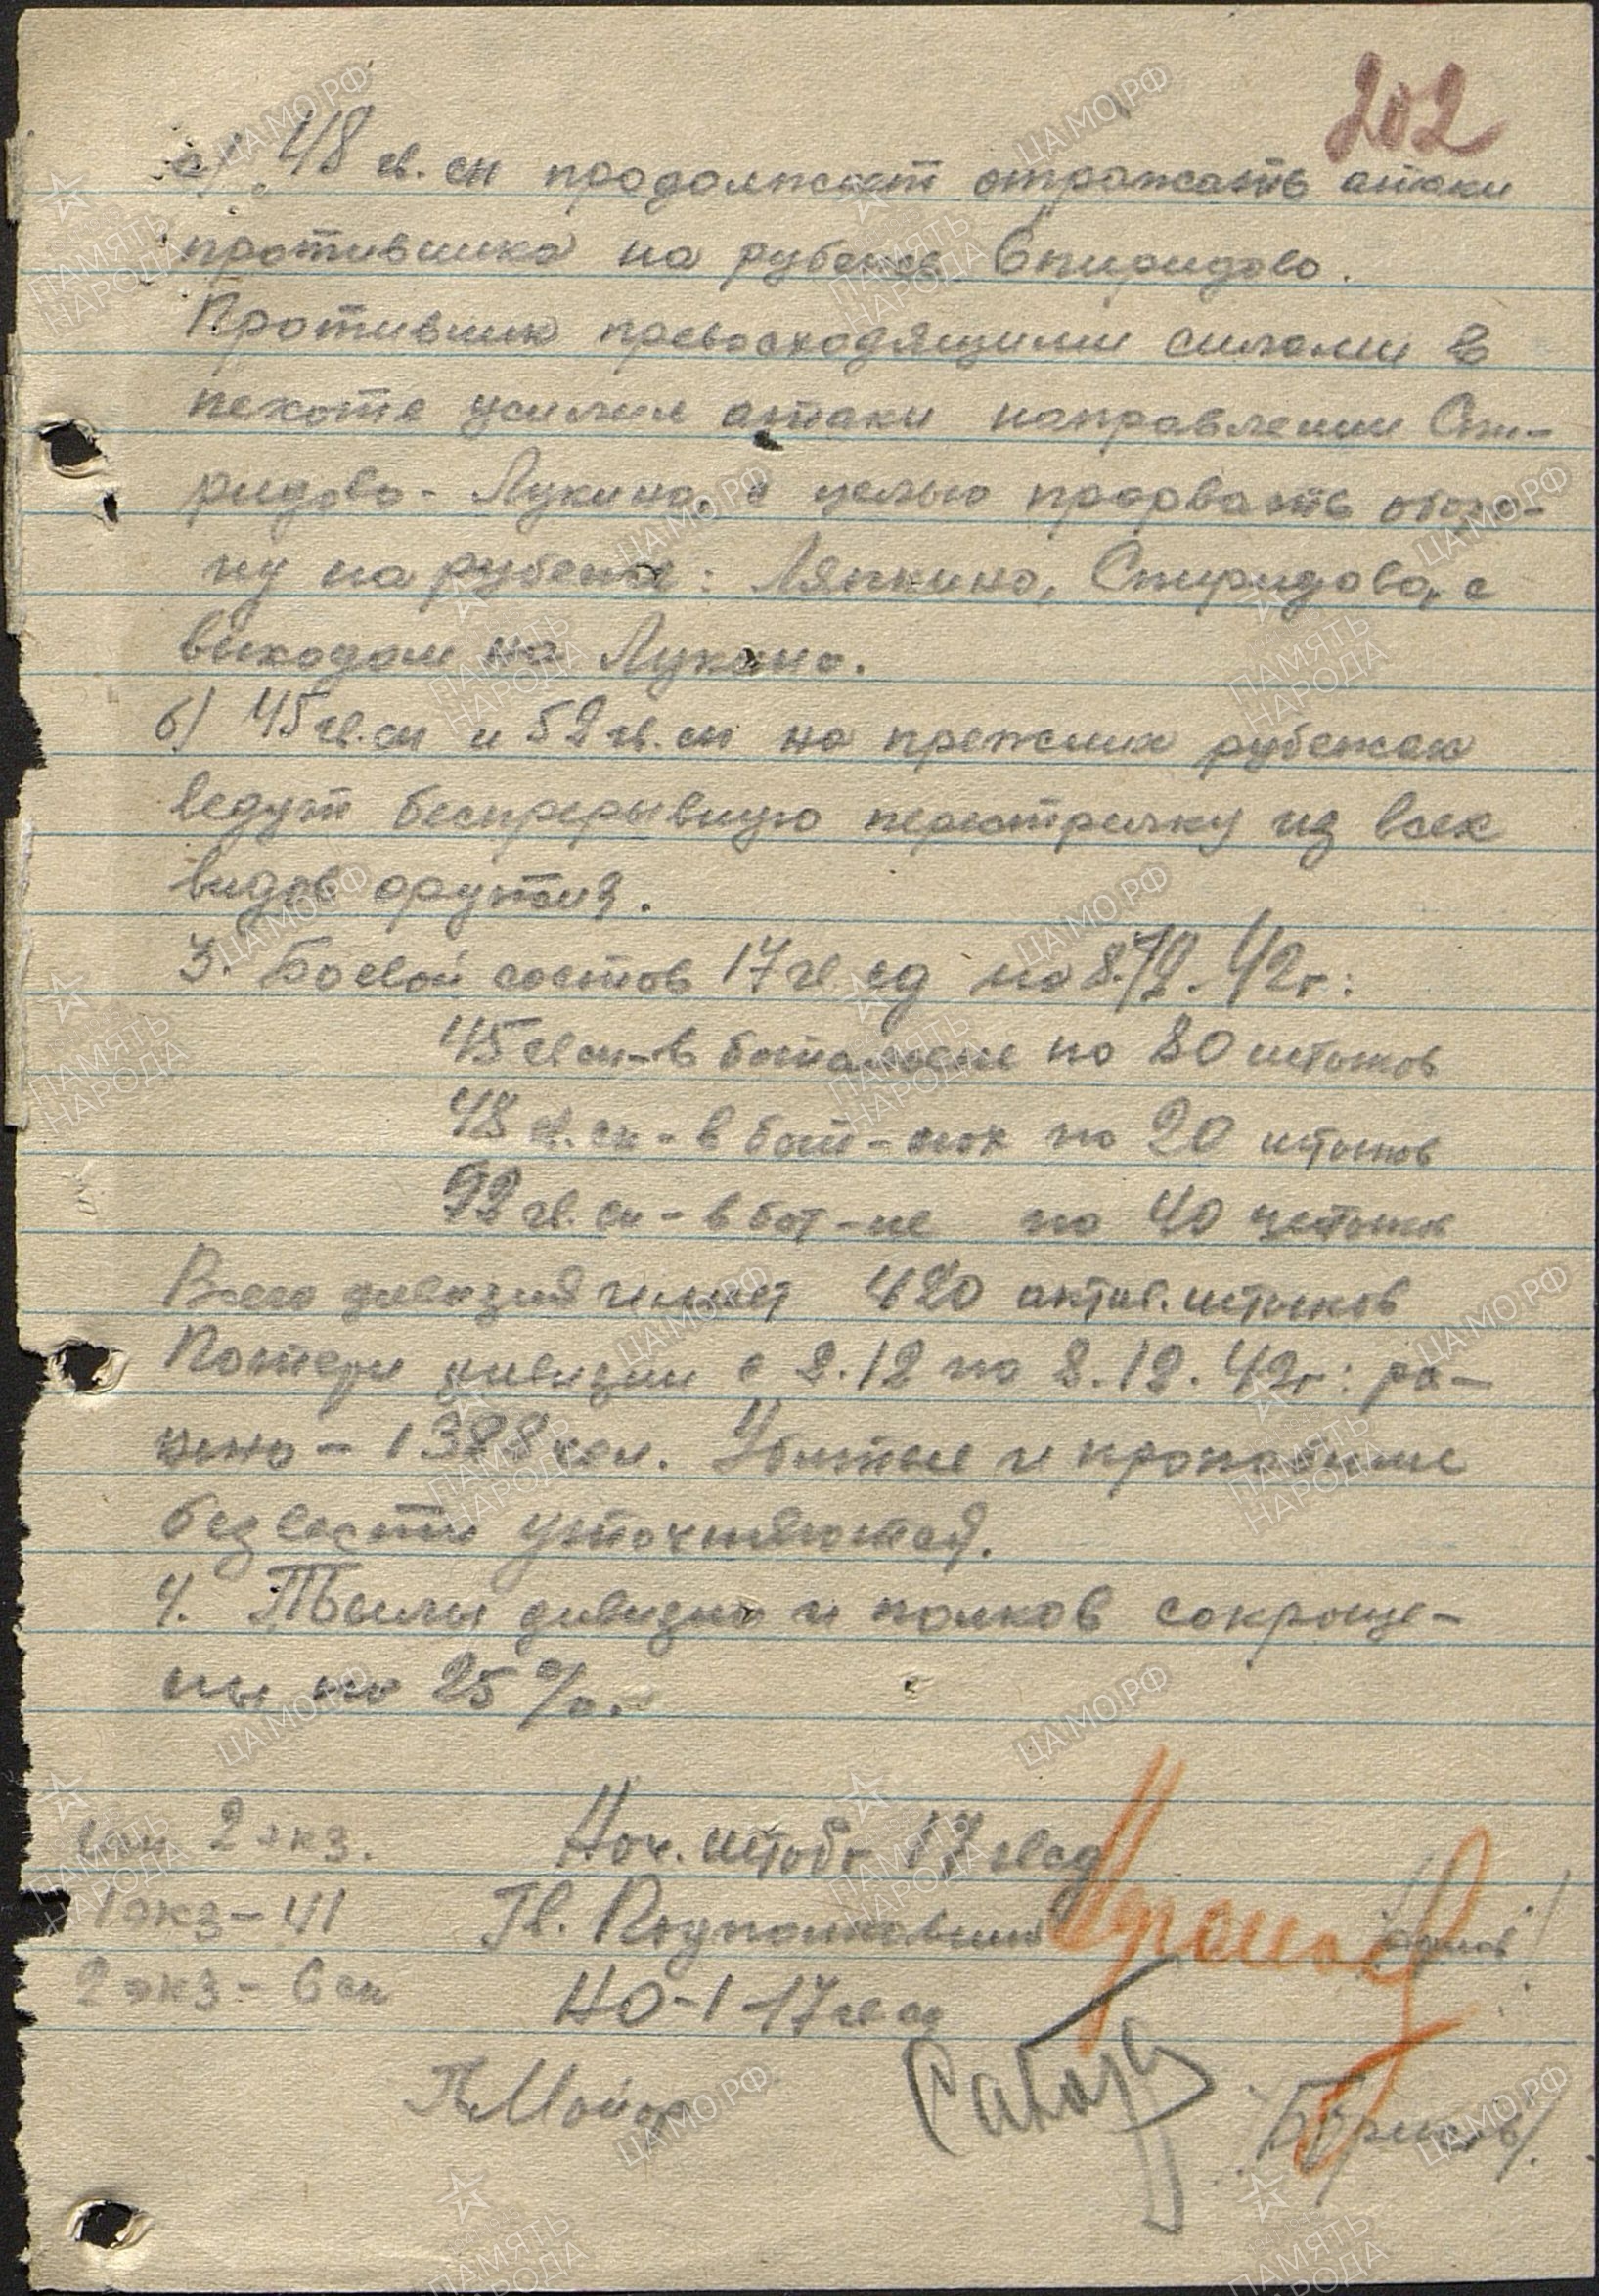 202
а) 48 гв. сп продолжает отражать атаки
противника на рубеже Спиридово.
Противник превосходящими силами в
пехоте усилил атаки направлении Спи-
ридово - Лукино, с целью прорвать оборо-
ну на рубеже: Ляпкино, Спиридово, с
выходом на Лукино.
б) 45 гв. сп и 52 гв. сп на прежних рубежах
ведут беспрерывную перестрелку из всех
видов оружия.
3. Боевой состав 17 гв. сд на 8.12.42г:
45 гв сп - в батальоне по 80 штыков
48 гв. сп - в бат-нах по 20 штыков
52 гв. сп - в бат-не по 40 штыков
Всего дивизия имеет 420 актив. штыков
Потери дивизии с 2.12 по 8.12.42г: ра-
нено - 1388 чел. Убитые и пропавшие
безвести уточняются.
4. Тылы дивизии и полков сокраще-
ны на 25%.
2 экз.
Нач. штаба 17 гвсд
1 экз - 41
Гв. Подполковник
2 экз - в
НО-1 17 гв сд
Гв. Майор
ЦАМО.РФ
ПАМЯТЬ
НАРОДА